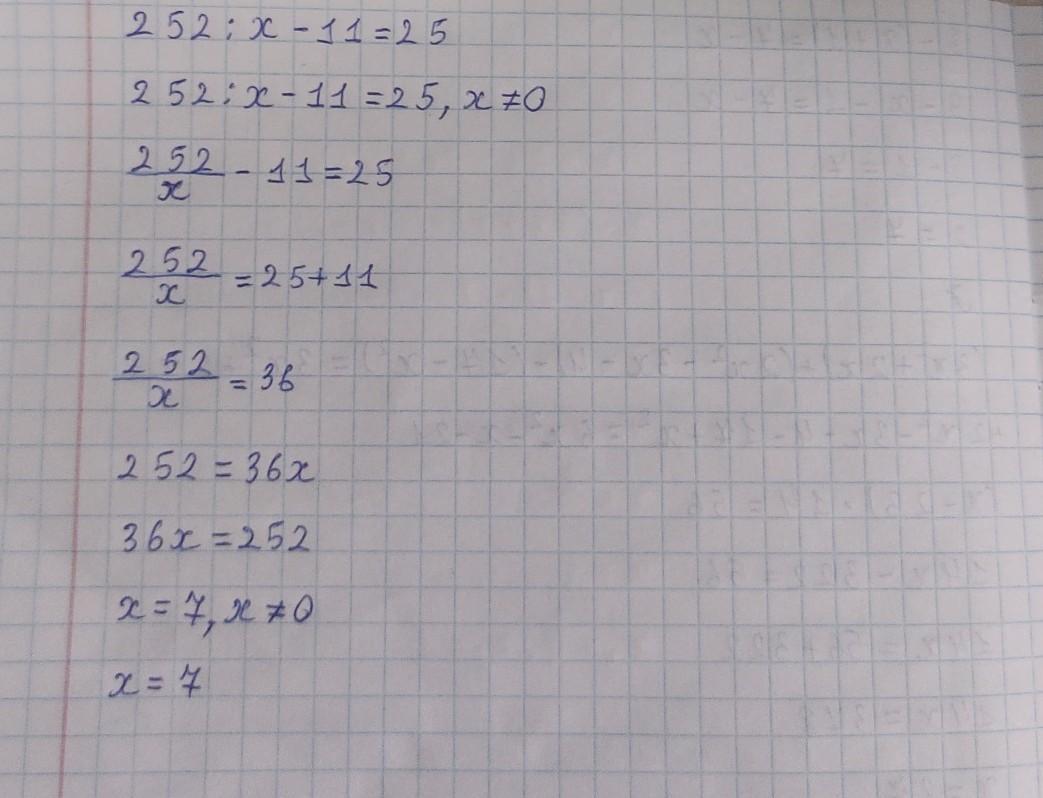 252:x-11=25
252:x-11=25, x≠0
252/x - 11=25
252/x = 25+11
252/x = 36
252=36x
36x=252
x=7, x≠0
x=7